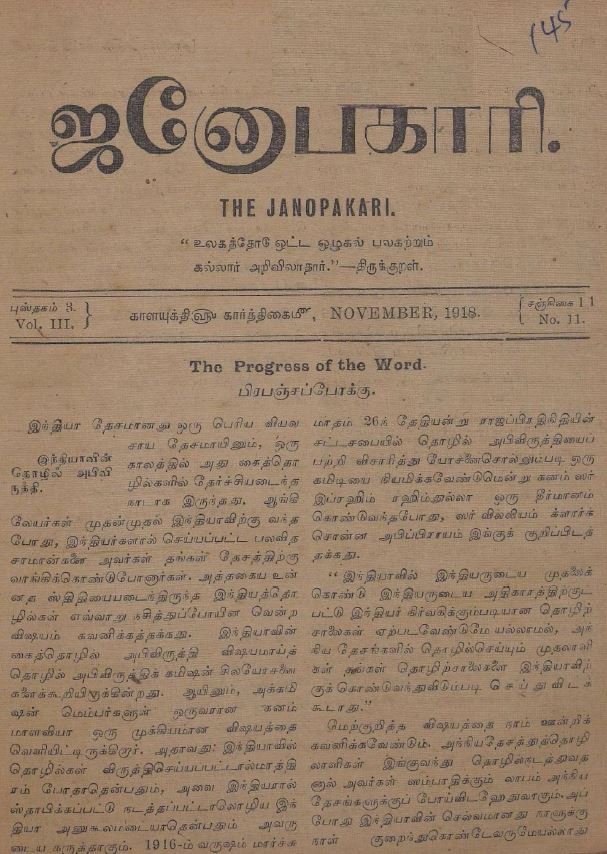 145
ஜனோபகாரி.
THE JANOPAKARI.
“ உலகத்தோடு ஒட்ட ஒழுகல் பலகற்றும்
கல்லார் அறிவிலாதார்.”—திருக்குறள்.
புஸ்தகம் 3.
Vol. III.
காளயுக்தி௵ கார்த்திகை௴, NOVEMBER, 1918.
சஞ்சிகை 11
No. 11.
The Progress of the Word.
பிரபஞ்சப்போக்கு.
இந்தியா தேசமானது ஒரு பெரிய வியவ
சாய தேசமாயினும், ஒரு
இந்தியாவின்
தொழில் அபிவி
ருத்தி.
காலத்தில் அது கைத்தொ
ழில்களில் தேர்ச்சியடைந்த
நாடாக இருந்தது. ஆங்கி
லேயர்கள் முதன்முதல் இந்தியாவிற்கு வந்த
போது, இந்தியர்களால் செய்யப்பட்ட பலவித
சாமான்களை அவர்கள் தங்கள் தேசத்திற்கு
வாங்கிக்கொண்டுபோனார்கள். அத்தகைய உன்
னத ஸ்திதியையடைந்திருந்த இந்தியத்தொ
ழில்கள் எவ்வாறு நசித்துப்போயின வென்ற
விஷயம் கவனிக்கத்தக்கது. இந்தியாவின்
கைத்தொழில் அபிவிருத்தி விஷயமாய்க்
தொழில் அபிவிருத்திக் கமிஷன் சிலயோசனை
களைக்கூறியிருக்கின்றது. ஆயினும், அக்கமி
ஷன் மெம்பர்களுள் ஒருவரான கனம்
மாளவியா ஒரு முக்கியமான விஷயத்தை
வெளியிட்டிருக்கிறார். அதாவது: இந்தியாவில்
தொழில்கள் விருத்திசெய்யப்பட்டால்மாத்தி
ரம் போதாதென்பதும், அவை இந்தியரால்
ஸ்தாபிக்கப்பட்டு நடத்தப்பட்டாலொழிய இந்
தியா அனுகூலமடையாதென்பதும் அவரு
டைய கருத்தாகும். 1916-ம் வருஷம் மார்ச்சு
மாதம் 26ந் தேதியன்று ராஜப்பிரதிநிதியின்
சட்டசபையில் தொழில் அபிவிருத்தியைப்
பற்றி விசாரித்து யோசனைசொல்லும்படி ஒரு
கமிடியை நியமிக்கவேண்டுமென்று கனம் ஸர்
இப்ரஹிம் ரஹிம்துல்லா ஒரு தீர்மானம்
கொண்டுவந்தபோது, ஸர் வில்லியம் க்ளார்க்
சொன்ன அபிப்பிராயம் இங்குக் குறிப்பிடத்
தக்கது.
“ இந்தியாவில் இந்தியருடைய முதலைக்
கொண்டு இந்தியருடைய அதிகாரத்திற்குட்
பட்டு இந்தியர் நிர்வகிக்கும்படியான தொழிற்
சாலைகள் ஏற்படவேண்டுமே யல்லாமல், அந்
நிய தேசங்களில் தொழில்செய்யும் முதலாளி
கள் தங்கள் தொழிற்சாலைகளை இந்தியாவிற்
குக் கொண்டுவந்துவிடும்படி செய்துவிடக்
கூடாது.”
மேற்குறித்த விஷயத்தை நாம் ஊன்றிக்
கவனிக்கவேண்டும். அந்நியதேசத்துத்தொழி
லாளிகள் இங்குவந்து தொழில்நடத்துவத
னால் அவர்கள் ஸம்பாதிக்கும் லாபம் அந்நிய
தேசங்களுக்குப் போய்விடஹேதுவாகும். அப்
போது இந்தியாவின் செல்வமானது நாளுக்கு
நாள் குறைந்துகொண்டேவருமேயல்லாது